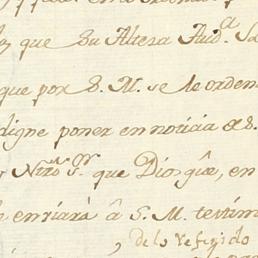 que Su Alteza Aud.ª
que por S. M. se le orden
digne poner en noticia de S.
Ntro S.or que Dios gûe, en
enviará â S. M. testim
de lo referido